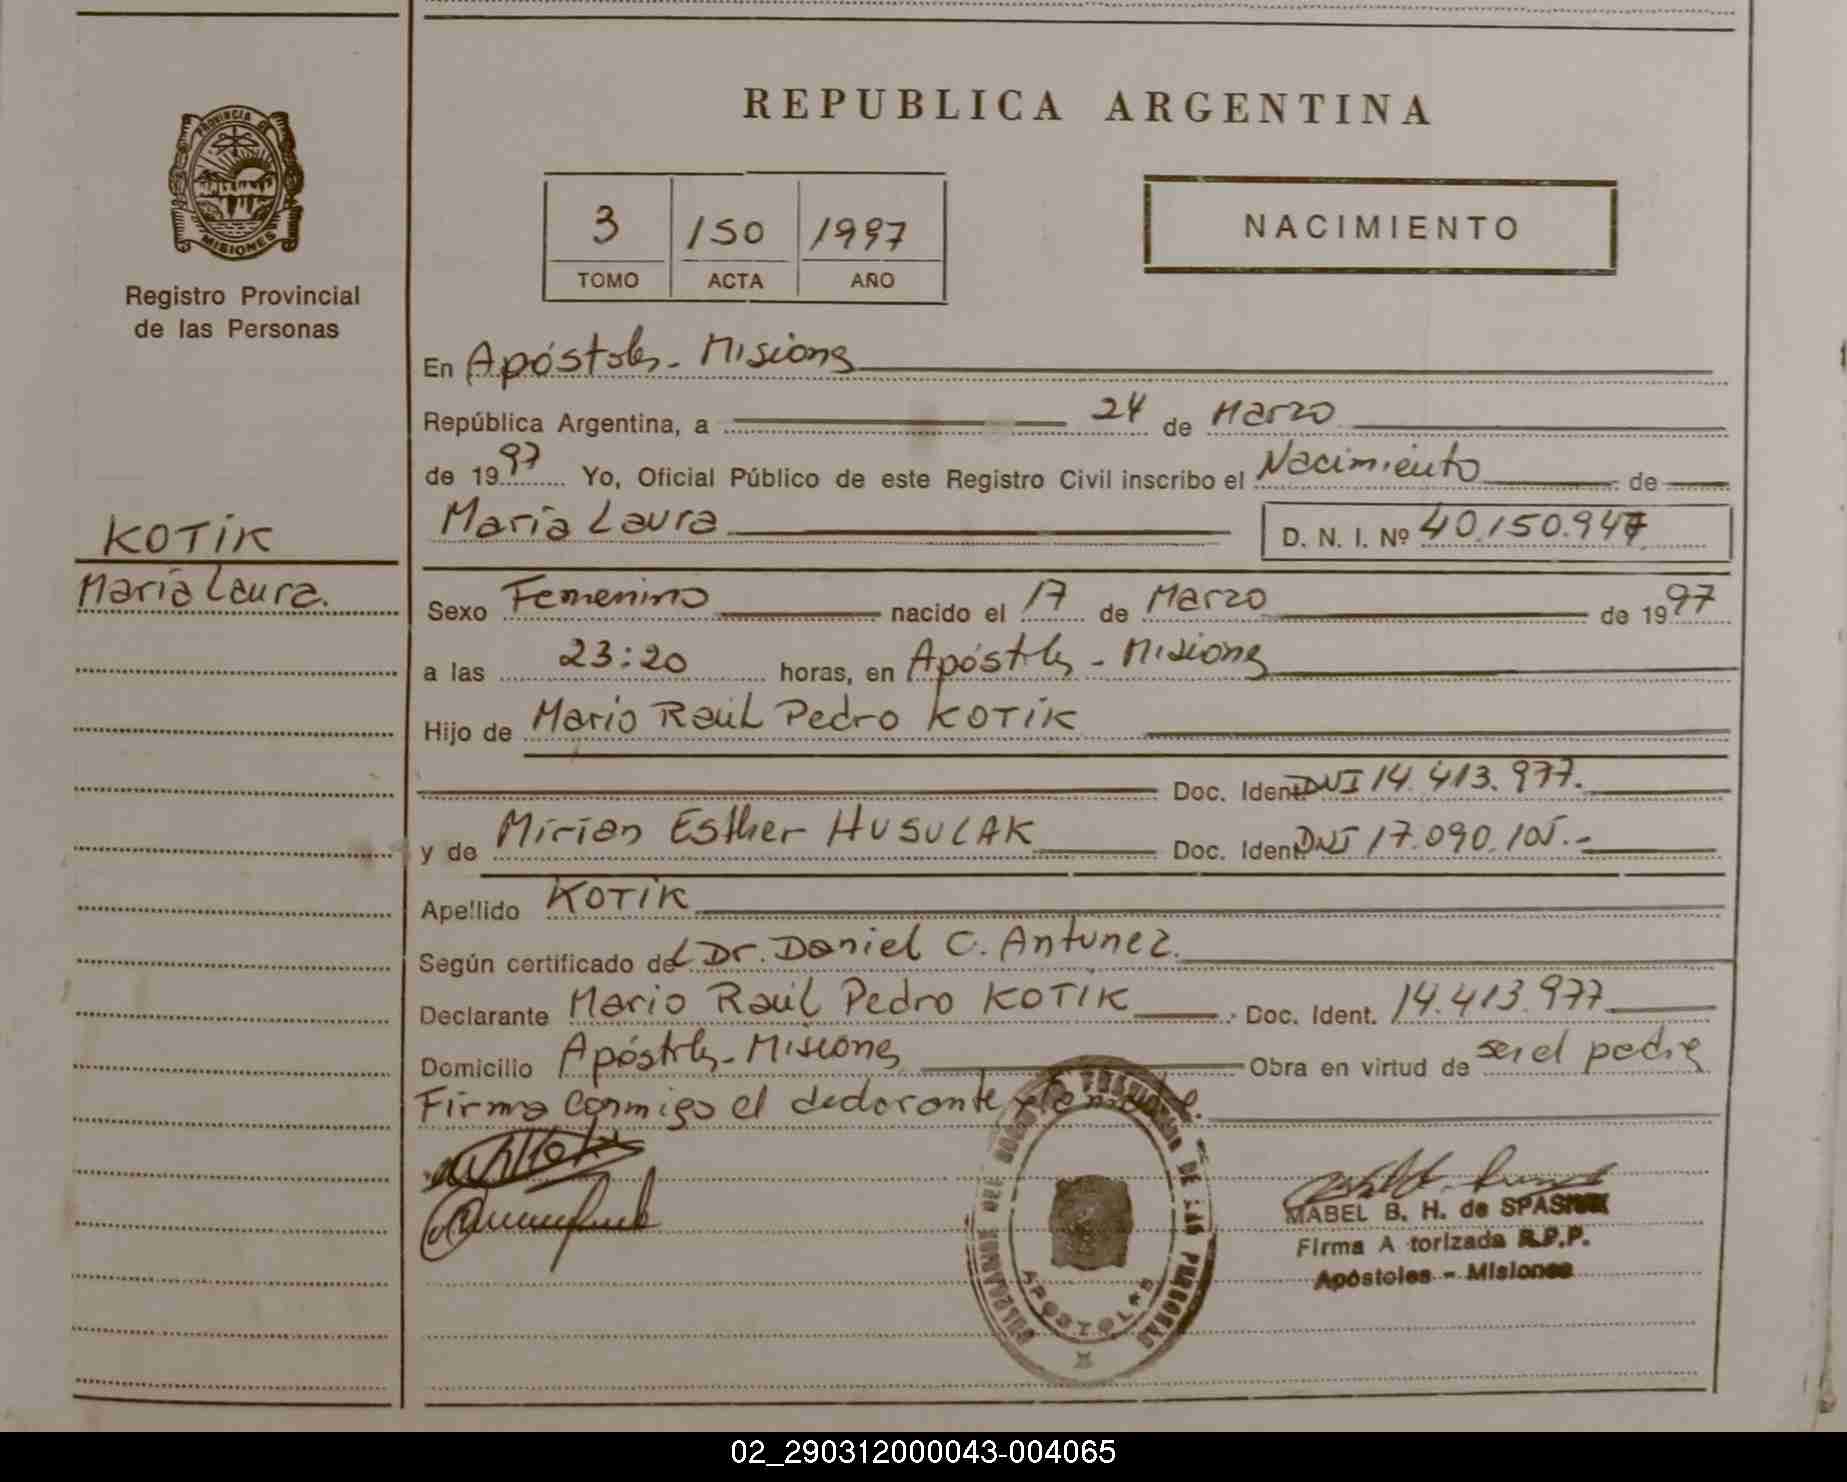 REPUBLICA ARGENTINA
PROVINCIA DE
MISIONES
Registro Provincial
de las Personas
3 150 1997
TOMO ACTA AÑO
NACIMIENTO
En Apóstoles - Misiones
República Argentina, a 24 de Marzo
de 1997 Yo, Oficial Público de este Registro Civil inscribo el Nacimiento de
María Laura D. N. I. Nº 40.150.947
KOTIK
María Laura.
Sexo Femenino nacido el 17 de Marzo de 1997
a las 23:20 horas, en Apóstoles - Misiones
Hijo de Mario Raúl Pedro KOTIK
Doc. Ident. DNI 14.413.977.
y de Mirian Esther HUSULAK Doc. Ident. DNI 17.090.105.-
Apellido KOTIK
Según certificado del Dr. Daniel C. Antunez.
Declarante Mario Raúl Pedro KOTIK Doc. Ident. 14.413.977
Domicilio Apóstoles - Misiones Obra en virtud de ser el padre
Firma conmigo el declarante y la madre.
DE LAS PERSONAS
APOSTOLES
MABEL B. H. de
Firma A torizada R.P.P.
Apóstoles - Misiones
02_290312000043-004065